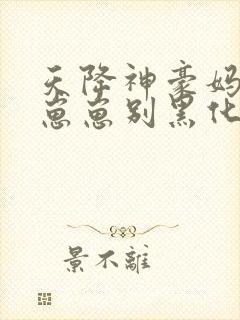 天降神豪妈
崽崽别黑化
景不離